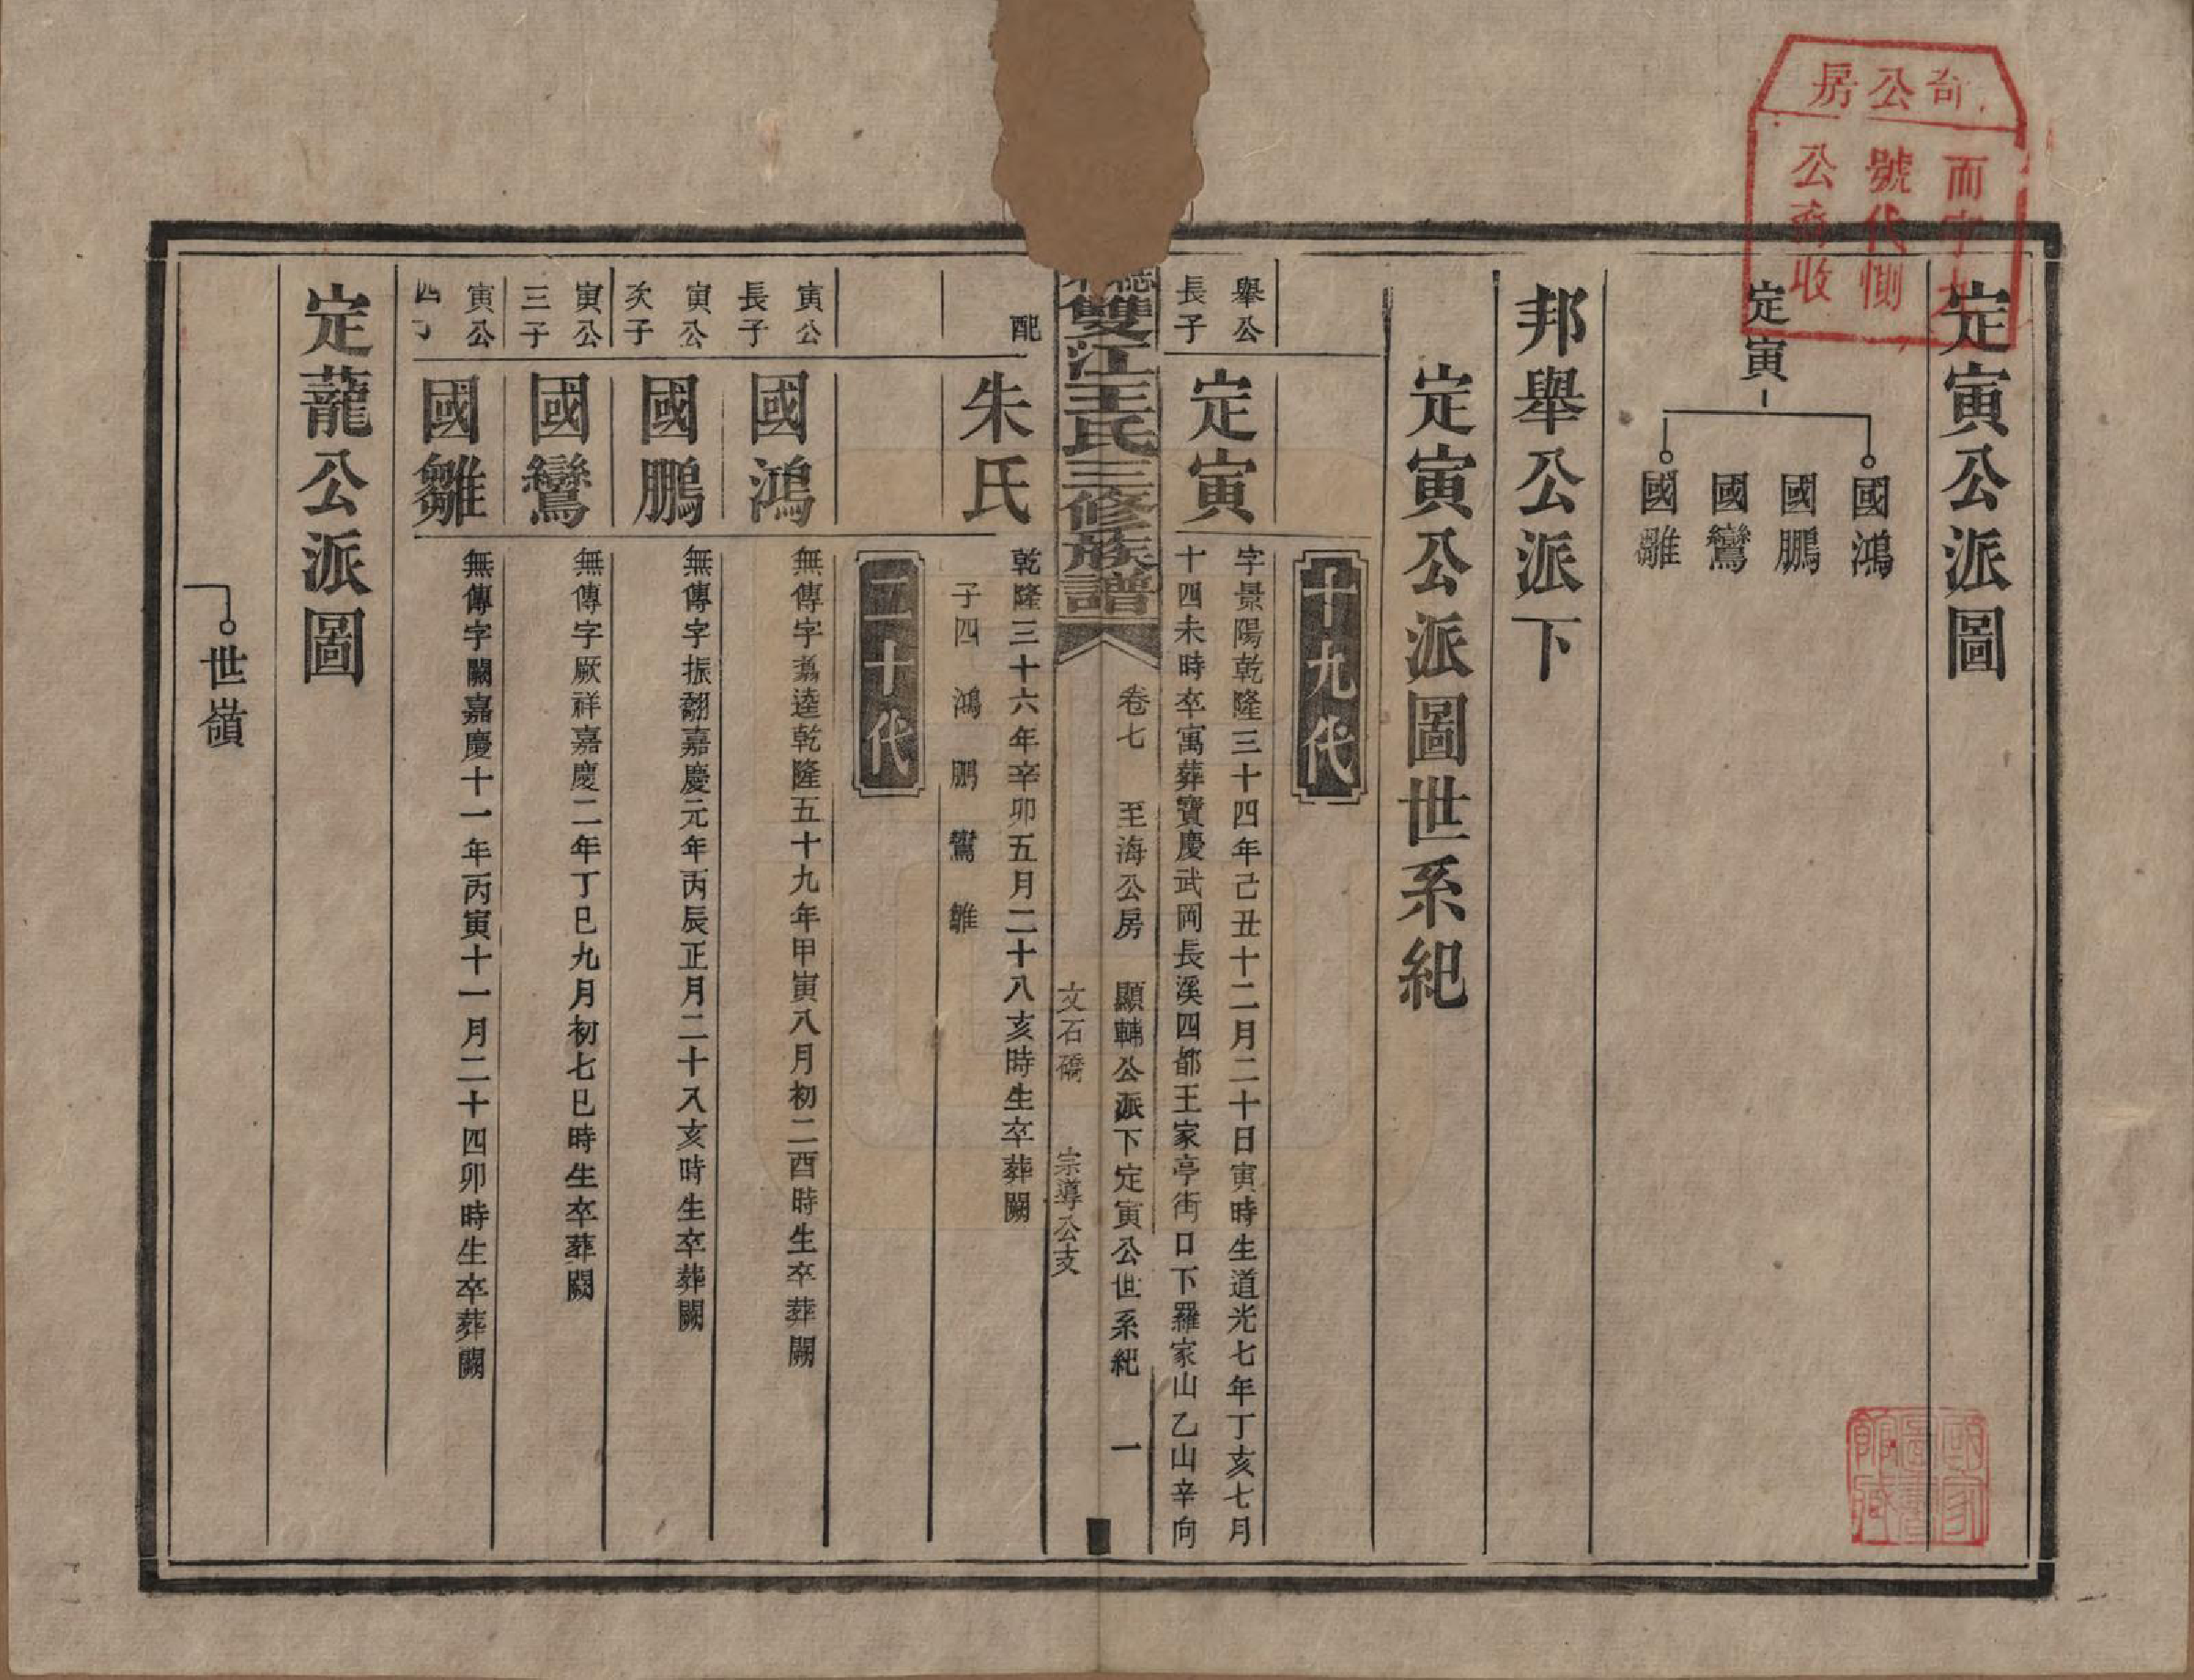 定寅公派圖
定寅
國鴻
國鵬
國鸞
國雛
邦舉公派下
定寅公派圖世系紀
十九代
舉公長子
定寅
字景陽乾隆三十四年己丑十二月二十日寅時生道光七年丁亥七月
十四未時卒寓葬寶慶武岡長溪四都王家亭街口下羅家山乙山辛向
雙江王氏三修族譜
卷七 至海公房 顯輔公派下定寅公世系紀 一
文石礄 宗導公支
配
朱氏
乾隆三十六年辛卯五月二十八亥時生卒葬闕
子四 鴻 鵬 鸞 雛
二十代
寅公長子
國鴻
無傳字翥逵乾隆五十九年甲寅八月初二酉時生卒葬闕
寅公次子
國鵬
無傳字振翮嘉慶元年丙辰正月二十八亥時生卒葬闕
寅公三子
國鸞
無傳字厥祥嘉慶二年丁巳九月初七巳時生卒葬闕
寅公四子
國雛
無傳字闕嘉慶十一年丙寅十一月二十四卯時生卒葬闕
定蘢公派圖
世嶺
房公奇
而字
號代惻
公 收
國家圖書館藏